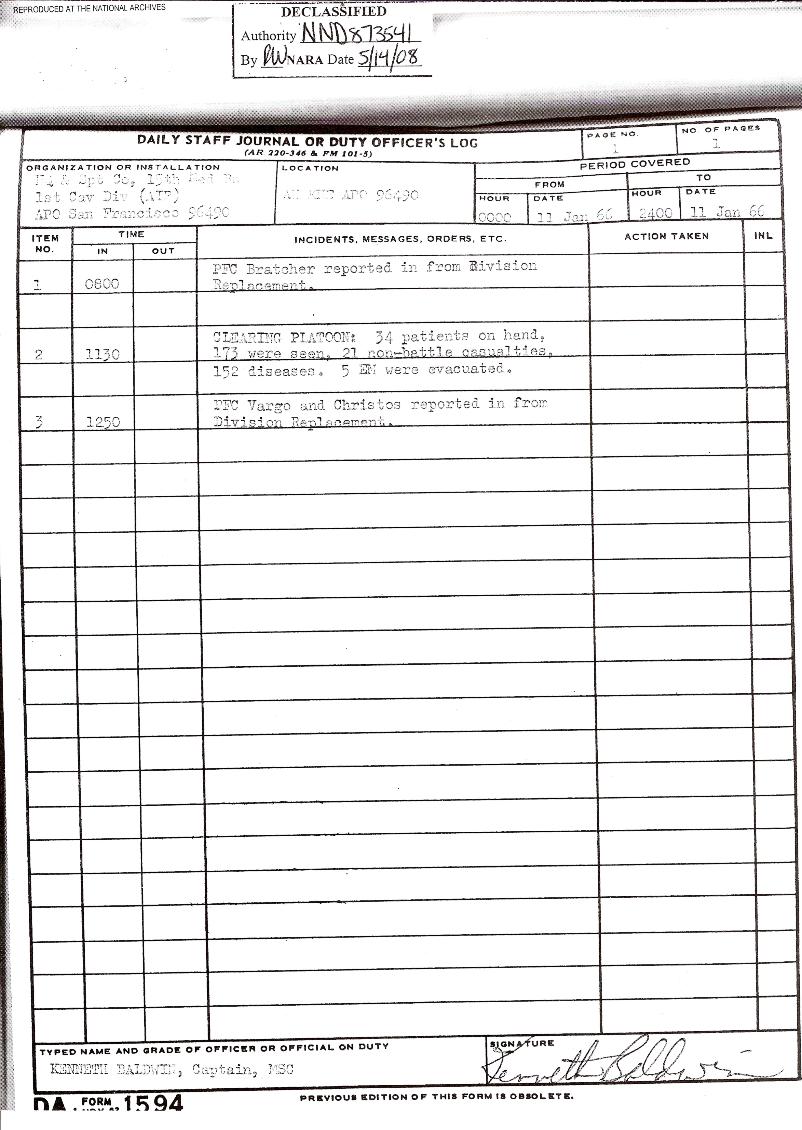 REPRODUCED AT THE NATIONAL ARCHIVES
DECLASSIFIED
Authority NND873541
By NARA Date 5/14/08
DAILY STAFF JOURNAL OR DUTY OFFICER'S LOG
(AR 220-346 & FM 101-5)
PAGE NO.
1
NO OF PAGES
1
ORGANIZATION OR INSTALLATION
Hq & Spt Co, 15th Med Bn
1st Cav Div (AIR)
APO San Francisco 96490
LOCATION
AN KHE APO 96490
PERIOD COVERED
FROM
TO
HOUR
DATE
HOUR
DATE
0000
11 Jan 66
2400
11 Jan 66
ITEM NO.
TIME
IN
OUT
INCIDENTS, MESSAGES, ORDERS, ETC.
ACTION TAKEN
INL
PFC Bratcher reported in from Division
1 0800 Replacement.
CLEARING PLATOON: 34 patients on hand,
2 1130 173 were seen, 21 non-battle casualties,
152 diseases. 5 EM were evacuated.
PFC Vargo and Christos reported in from
3 1250 Division Replacement.
TYPED NAME AND GRADE OF OFFICER OR OFFICIAL ON DUTY
KENNETH BALDWIN, Captain, MSC
SIGNATURE
Kenneth Baldwin
DA FORM 1594
PREVIOUS EDITION OF THIS FORM IS OBSOLETE.